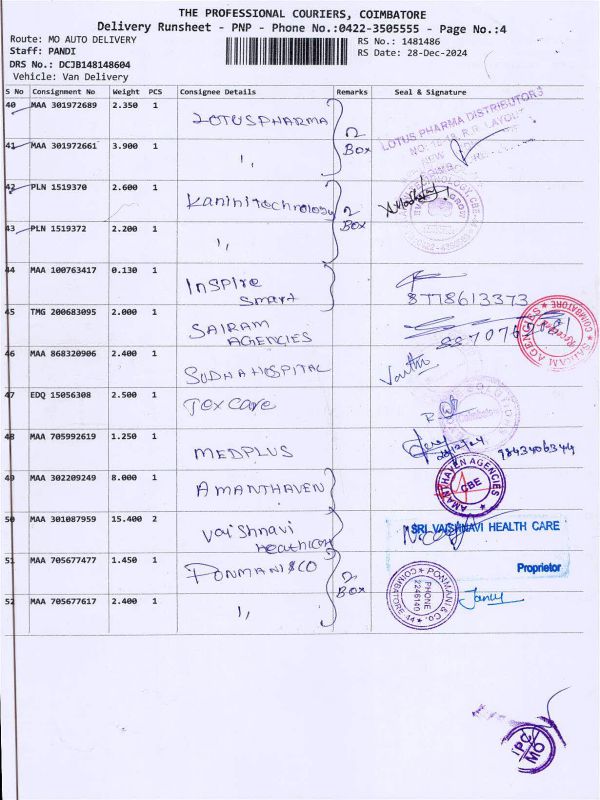 THE PROFESSIONAL COURIERS, COIMBATORE
Delivery Runsheet - PNP - Phone No.:0422-3505555 - Page No.:4
Route: MO AUTO DELIVERY
RS No.: 1481486
Staff: PANDI
RS Date: 28-Dec-2024
DRS No.: DCJB148148604
Vehicle: Van Delivery
S No Consignment No Weight PCS Consignee Details Remarks Seal & Signature
40 MAA 301972689 2.350 1 LOTUSPHARMA 2 Box
LOTUS PHARMA DISTRIBUTORS
41 MAA 301972661 3.900 1 ,,
42 PLN 1519370 2.600 1 Kaninitechnology 2 Box
43 PLN 1519372 2.200 1 ,,
44 MAA 100763417 0.130 1 Inspire Smart
8778613373
45 TMG 200683095 2.000 1 SAIRAM AGENCIES
SAIRAM AGENCIES COIMBATORE
46 MAA 868320906 2.400 1 SUDHA HOSPITAL
47 EDQ 15056308 2.500 1 Texcare
48 MAA 705992619 1.250 1 MEDPLUS
28/12/24 9843406344
49 MAA 302209249 8.000 1 AMANTHAVEN
AMANTHAVEN AGENCIES CBE
50 MAA 301087959 15.400 2 Vaishnavi Healthcare
SRI VAISHNAVI HEALTH CARE
Proprietor
51 MAA 705677477 1.450 1 PONMANI&CO 2 Box
PONMAN & CO. COIMBATORE 44
PHONE 2246140
52 MAA 705677617 2.400 1 ,,
IPC MO